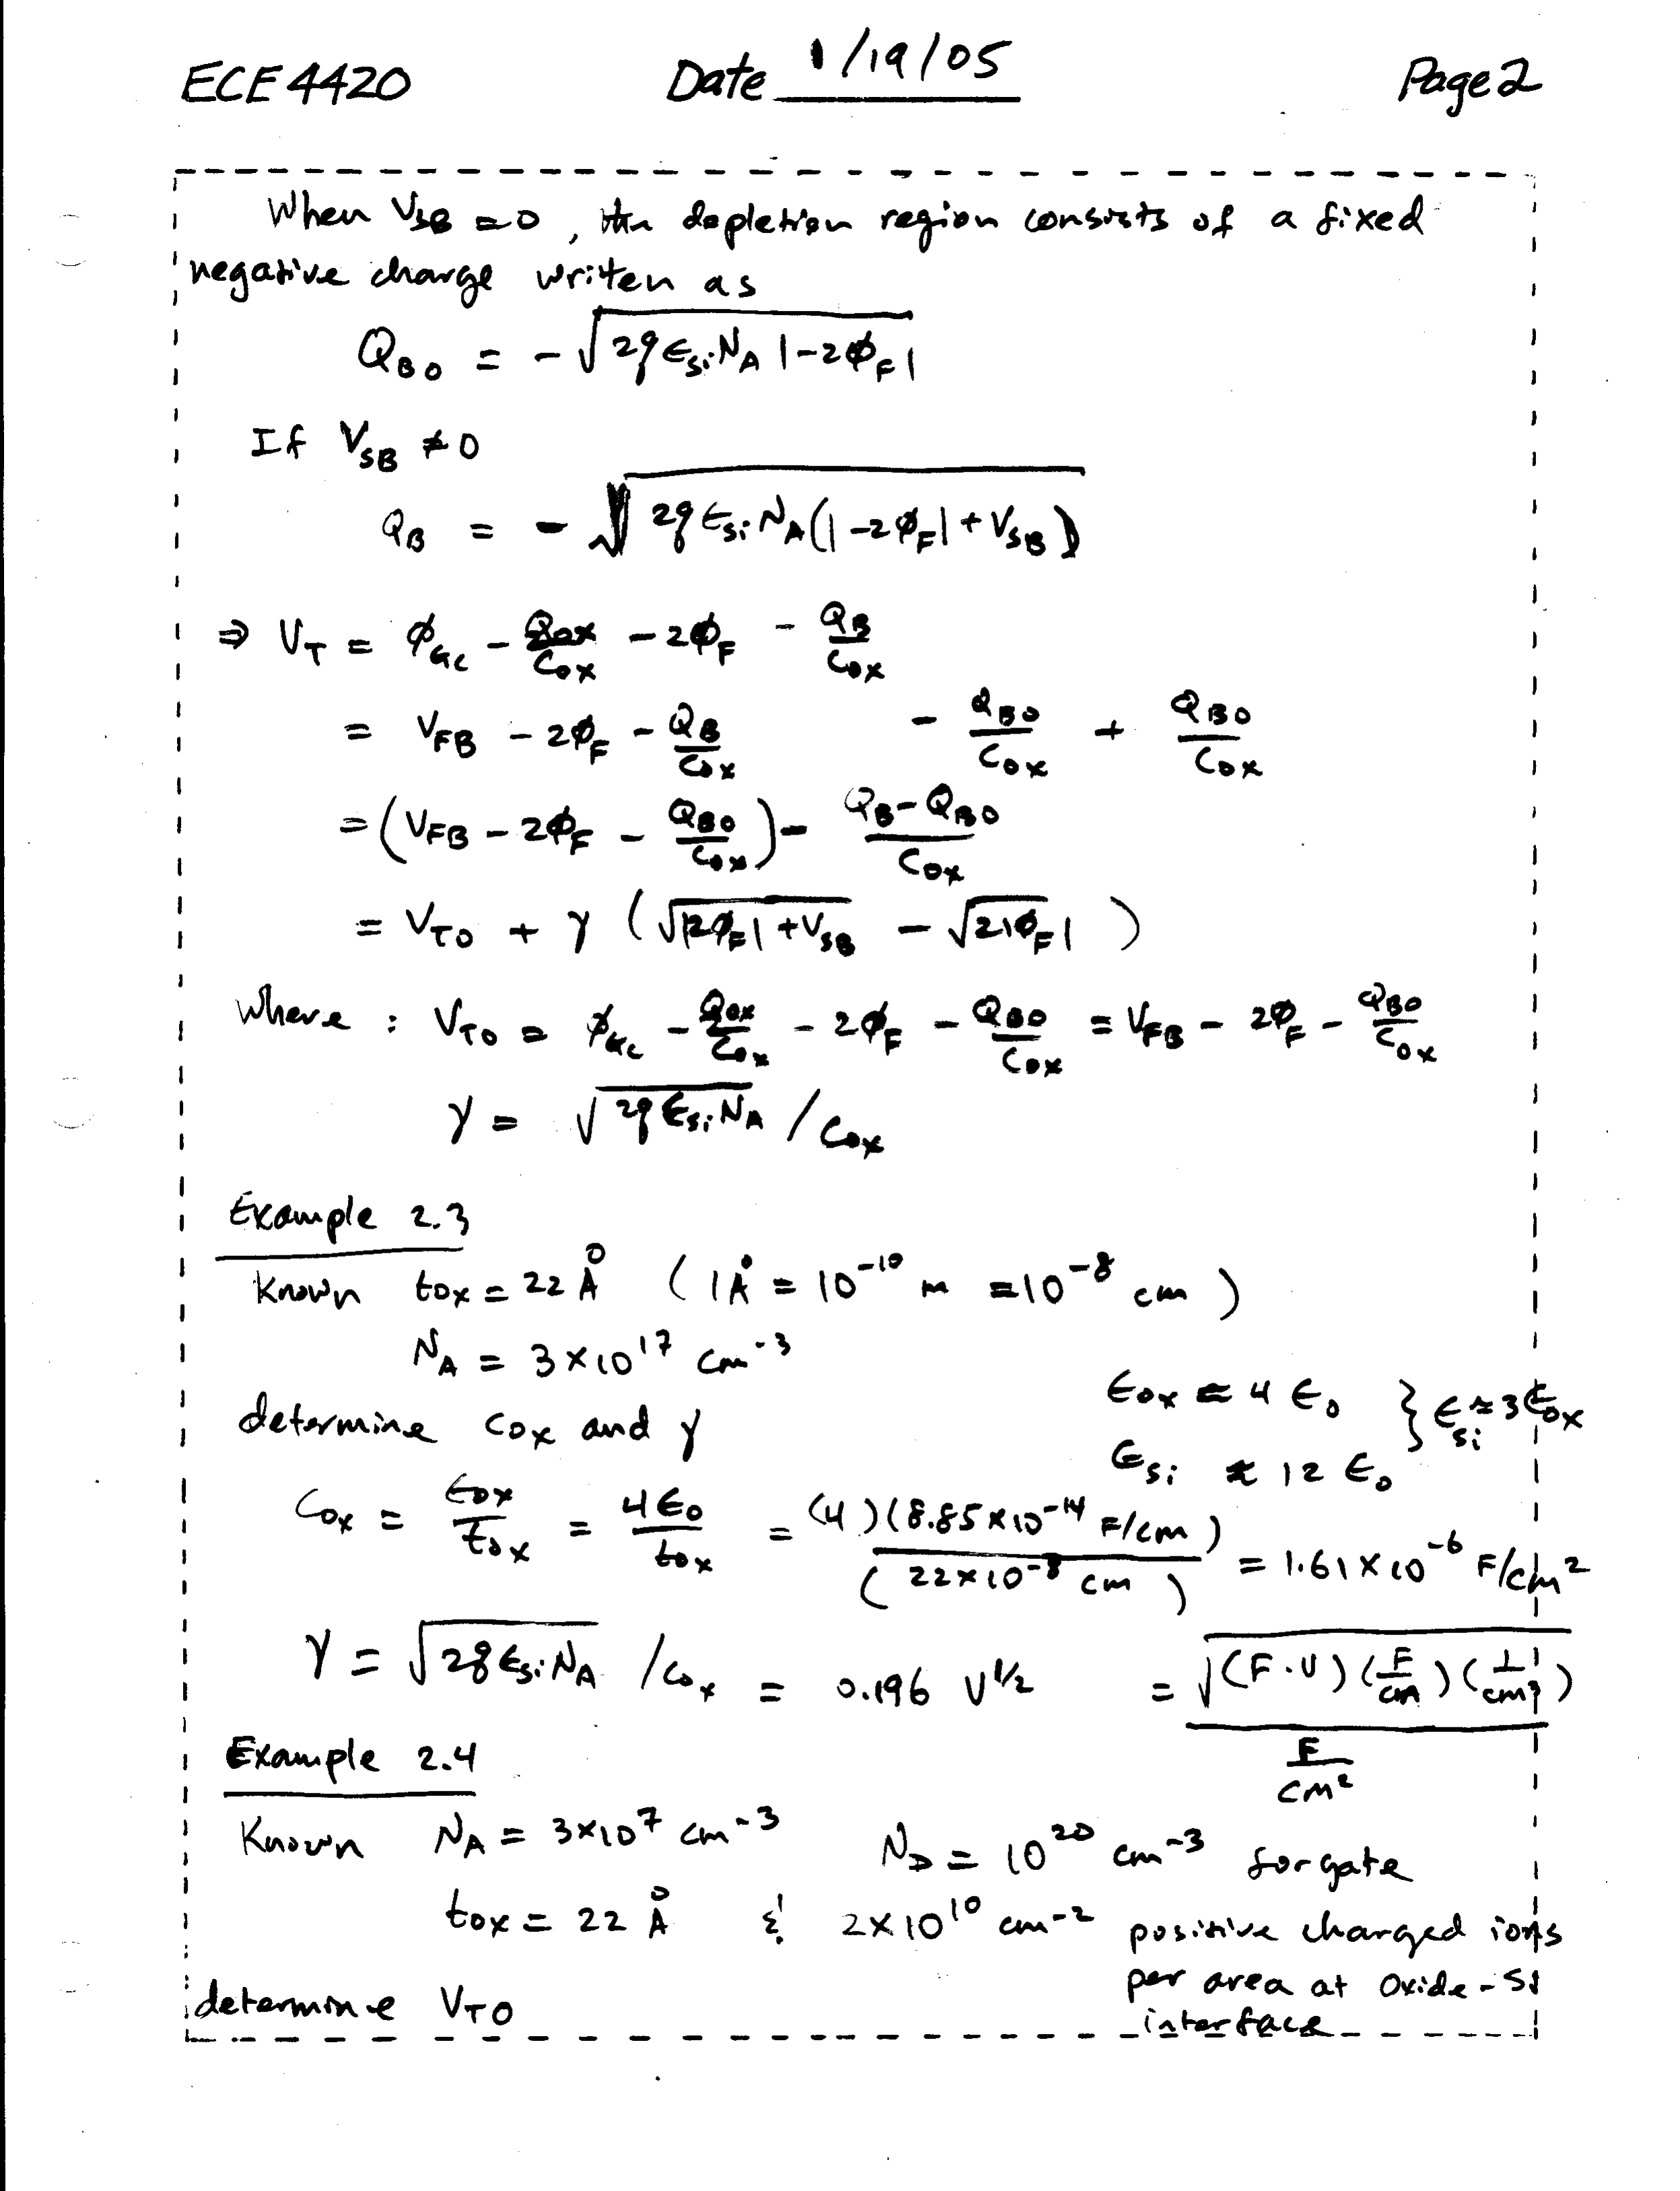 ECE 4420 Date 1/19/05 Page 2
When V_SB = 0, the depletion region consists of a fixed
negative charge writen as
Q_B0 = - √(2q ε_Si N_A |-2φ_F|)
If V_SB ≠ 0
Q_B = - √(2q ε_Si N_A (|-2φ_F| + V_SB))
⇒ V_T = φ_GC - Q_ox/C_ox - 2φ_F - Q_B/C_ox
= V_FB - 2φ_F - Q_B/C_ox - Q_B0/C_ox + Q_B0/C_ox
= (V_FB - 2φ_F - Q_B0/C_ox) - (Q_B - Q_B0)/C_ox
= V_T0 + γ (√(|2φ_F| + V_SB) - √(2|φ_F|))
Where : V_T0 = φ_GC - Q_ox/C_ox - 2φ_F - Q_B0/C_ox = V_FB - 2φ_F - Q_B0/C_ox
γ = √(2q ε_Si N_A) / C_ox
Example 2.3
Known t_ox = 22 Å (1Å = 10^-10 m = 10^-8 cm)
N_A = 3×10^17 cm^-3
determine C_ox and γ
ε_ox ≈ 4 ε_0 } ε_si ≈ 3 ε_ox
ε_si ≈ 12 ε_0
C_ox = ε_ox/t_ox = 4ε_0/t_ox = (4)(8.85×10^-14 F/cm)/(22×10^-8 cm) = 1.61×10^-6 F/cm^2
γ = √(2q ε_Si N_A) / C_ox = 0.196 V^1/2 = √((F·V)(F/cm)(1/cm^3)) / (F/cm^2)
Example 2.4
Known N_A = 3×10^7 cm^-3 N_D = 10^20 cm^-3 for gate
t_ox = 22 Å & 2×10^10 cm^-2 positive charged ions
per area at Oxide-Si
interface
determine V_T0